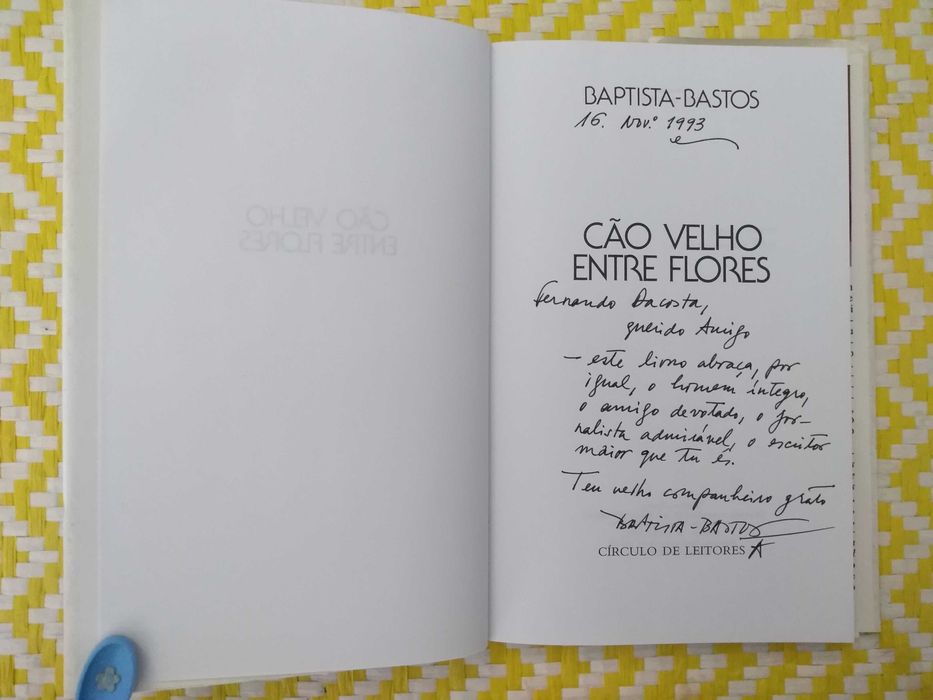 BAPTISTA-BASTOS
16. Nov.º 1993
CÃO VELHO
ENTRE FLORES
Fernando Dacosta,
querido Amigo
– este livro abraça, por
igual, o homem íntegro,
o amigo devotado, o jor-
nalista admirável, o escritor
maior que tu és.
Teu velho companheiro grato
BAPTISTA-BASTOS
CÍRCULO DE LEITORES
CÃO VELHO
ENTRE FLORES